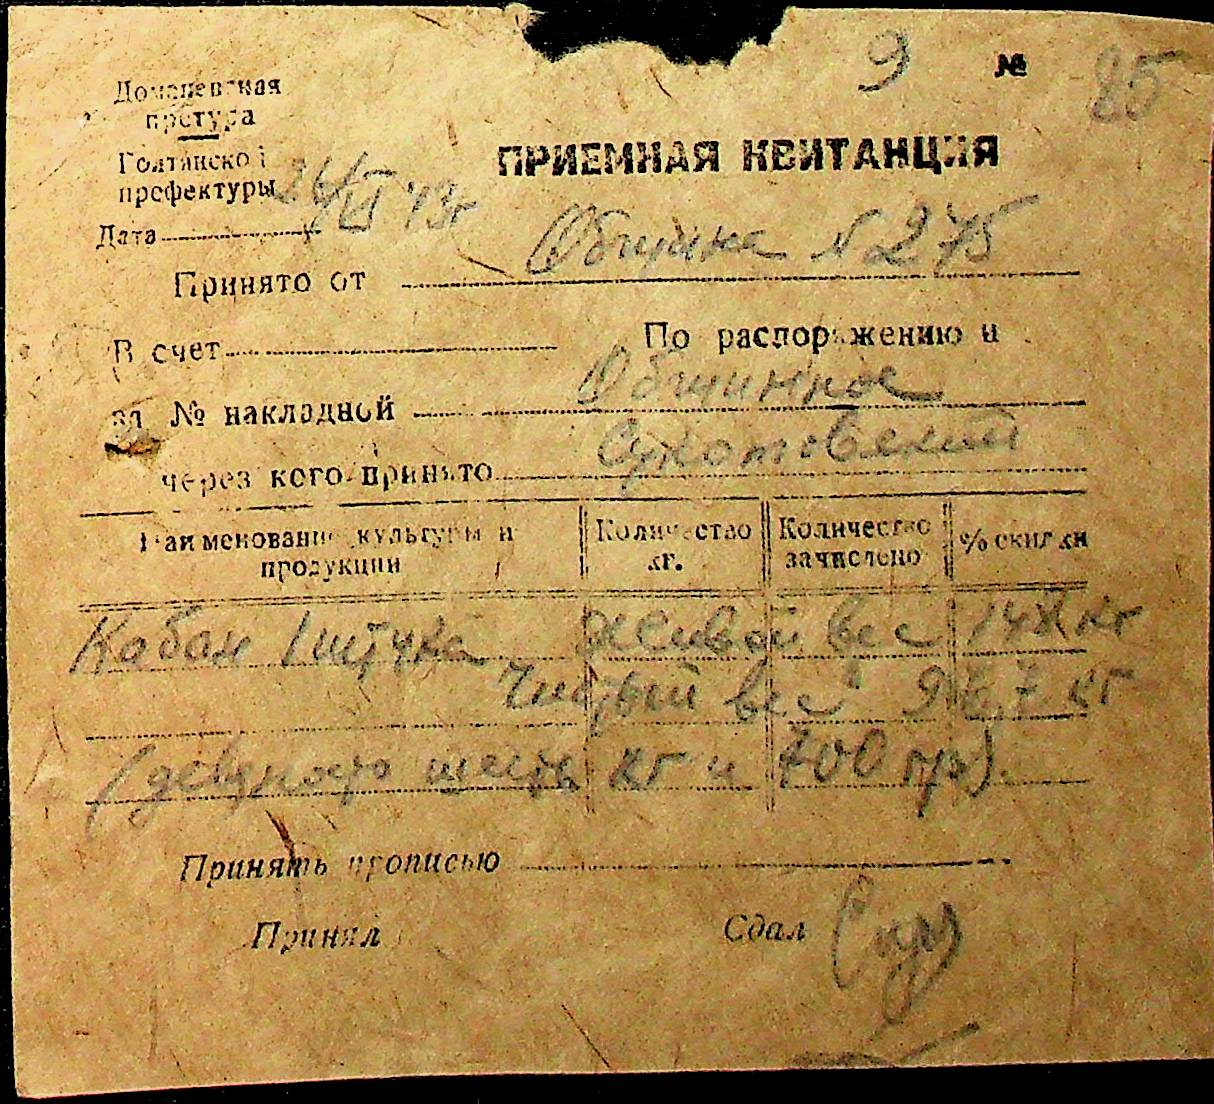 9 № 85
Доманевская
претура
Голтянской
префектуры
ПРИЕМНАЯ КВИТАНЦИЯ
Дата 26/VI 43г
Принято от Община N 275
В счет По распоряжению и
за № накладной Общинное
через кого принято
Наименование культуры и продукции Количество кг. Количество зачислено % скидки
Кабан 1 штука живой вес 148 кг
Чистый вес 96,7 кг
(девяносто шесть кг и 700 гр).
Принять прописью
Принял Сдал